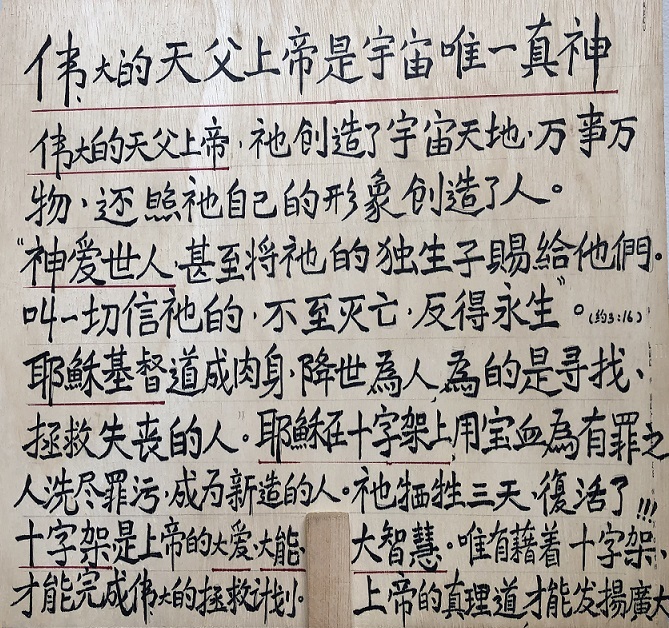 伟大的天父上帝是宇宙唯一真神
伟大的天父上帝，祂创造了宇宙天地，万事万
物，还照祂自己的形象创造了人。
“神爱世人，甚至将祂的独生子賜給他們。
叫一切信祂的，不至灭亡，反得永生”。(约3:16)
耶穌基督道成肉身，降世為人，為的是寻找、
拯救失丧的人。耶穌在十字架上，用宝血為有罪之
人洗尽罪污，成为新造的人。祂牺牲三天，復活了!!!
十字架是上帝的大爱、大能、大智慧。唯有藉着十字架，
才能完成伟大的拯救计划。上帝的真理道才能发揚廣大